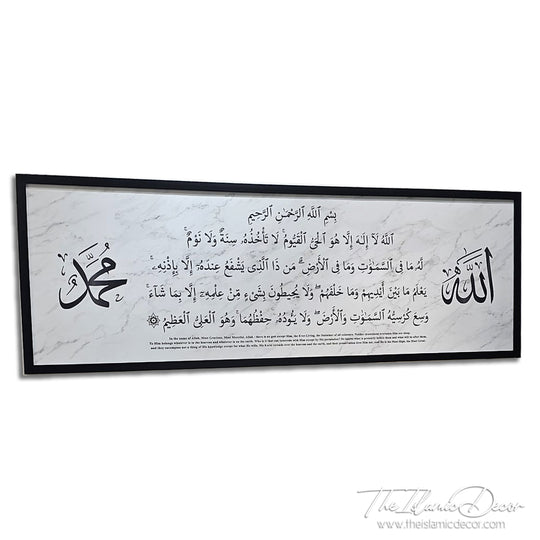 بِسْمِ ٱللَّهِ ٱلرَّحْمَٰنِ ٱلرَّحِيمِ
ٱللَّهُ لَآ إِلَٰهَ إِلَّا هُوَ ٱلْحَىُّ ٱلْقَيُّومُ ۚ لَا تَأْخُذُهُۥ سِنَةٌ وَلَا نَوْمٌ ۚ
لَّهُۥ مَا فِى ٱلسَّمَٰوَٰتِ وَمَا فِى ٱلْأَرْضِ ۗ مَن ذَا ٱلَّذِى يَشْفَعُ عِندَهُۥٓ إِلَّا بِإِذْنِهِۦ ۚ
يَعْلَمُ مَا بَيْنَ أَيْدِيهِمْ وَمَا خَلْفَهُمْ ۖ وَلَا يُحِيطُونَ بِشَىْءٍ مِّنْ عِلْمِهِۦٓ إِلَّا بِمَا شَآءَ ۚ
وَسِعَ كُرْسِيُّهُ ٱلسَّمَٰوَٰتِ وَٱلْأَرْضَ ۖ وَلَا يَـُٔودُهُۥ حِفْظُهُمَا ۚ وَهُوَ ٱلْعَلِىُّ ٱلْعَظِيمُ
ٱللَّه
مُحَمَّد
The Islamic Decor
www.theislamicdecor.com